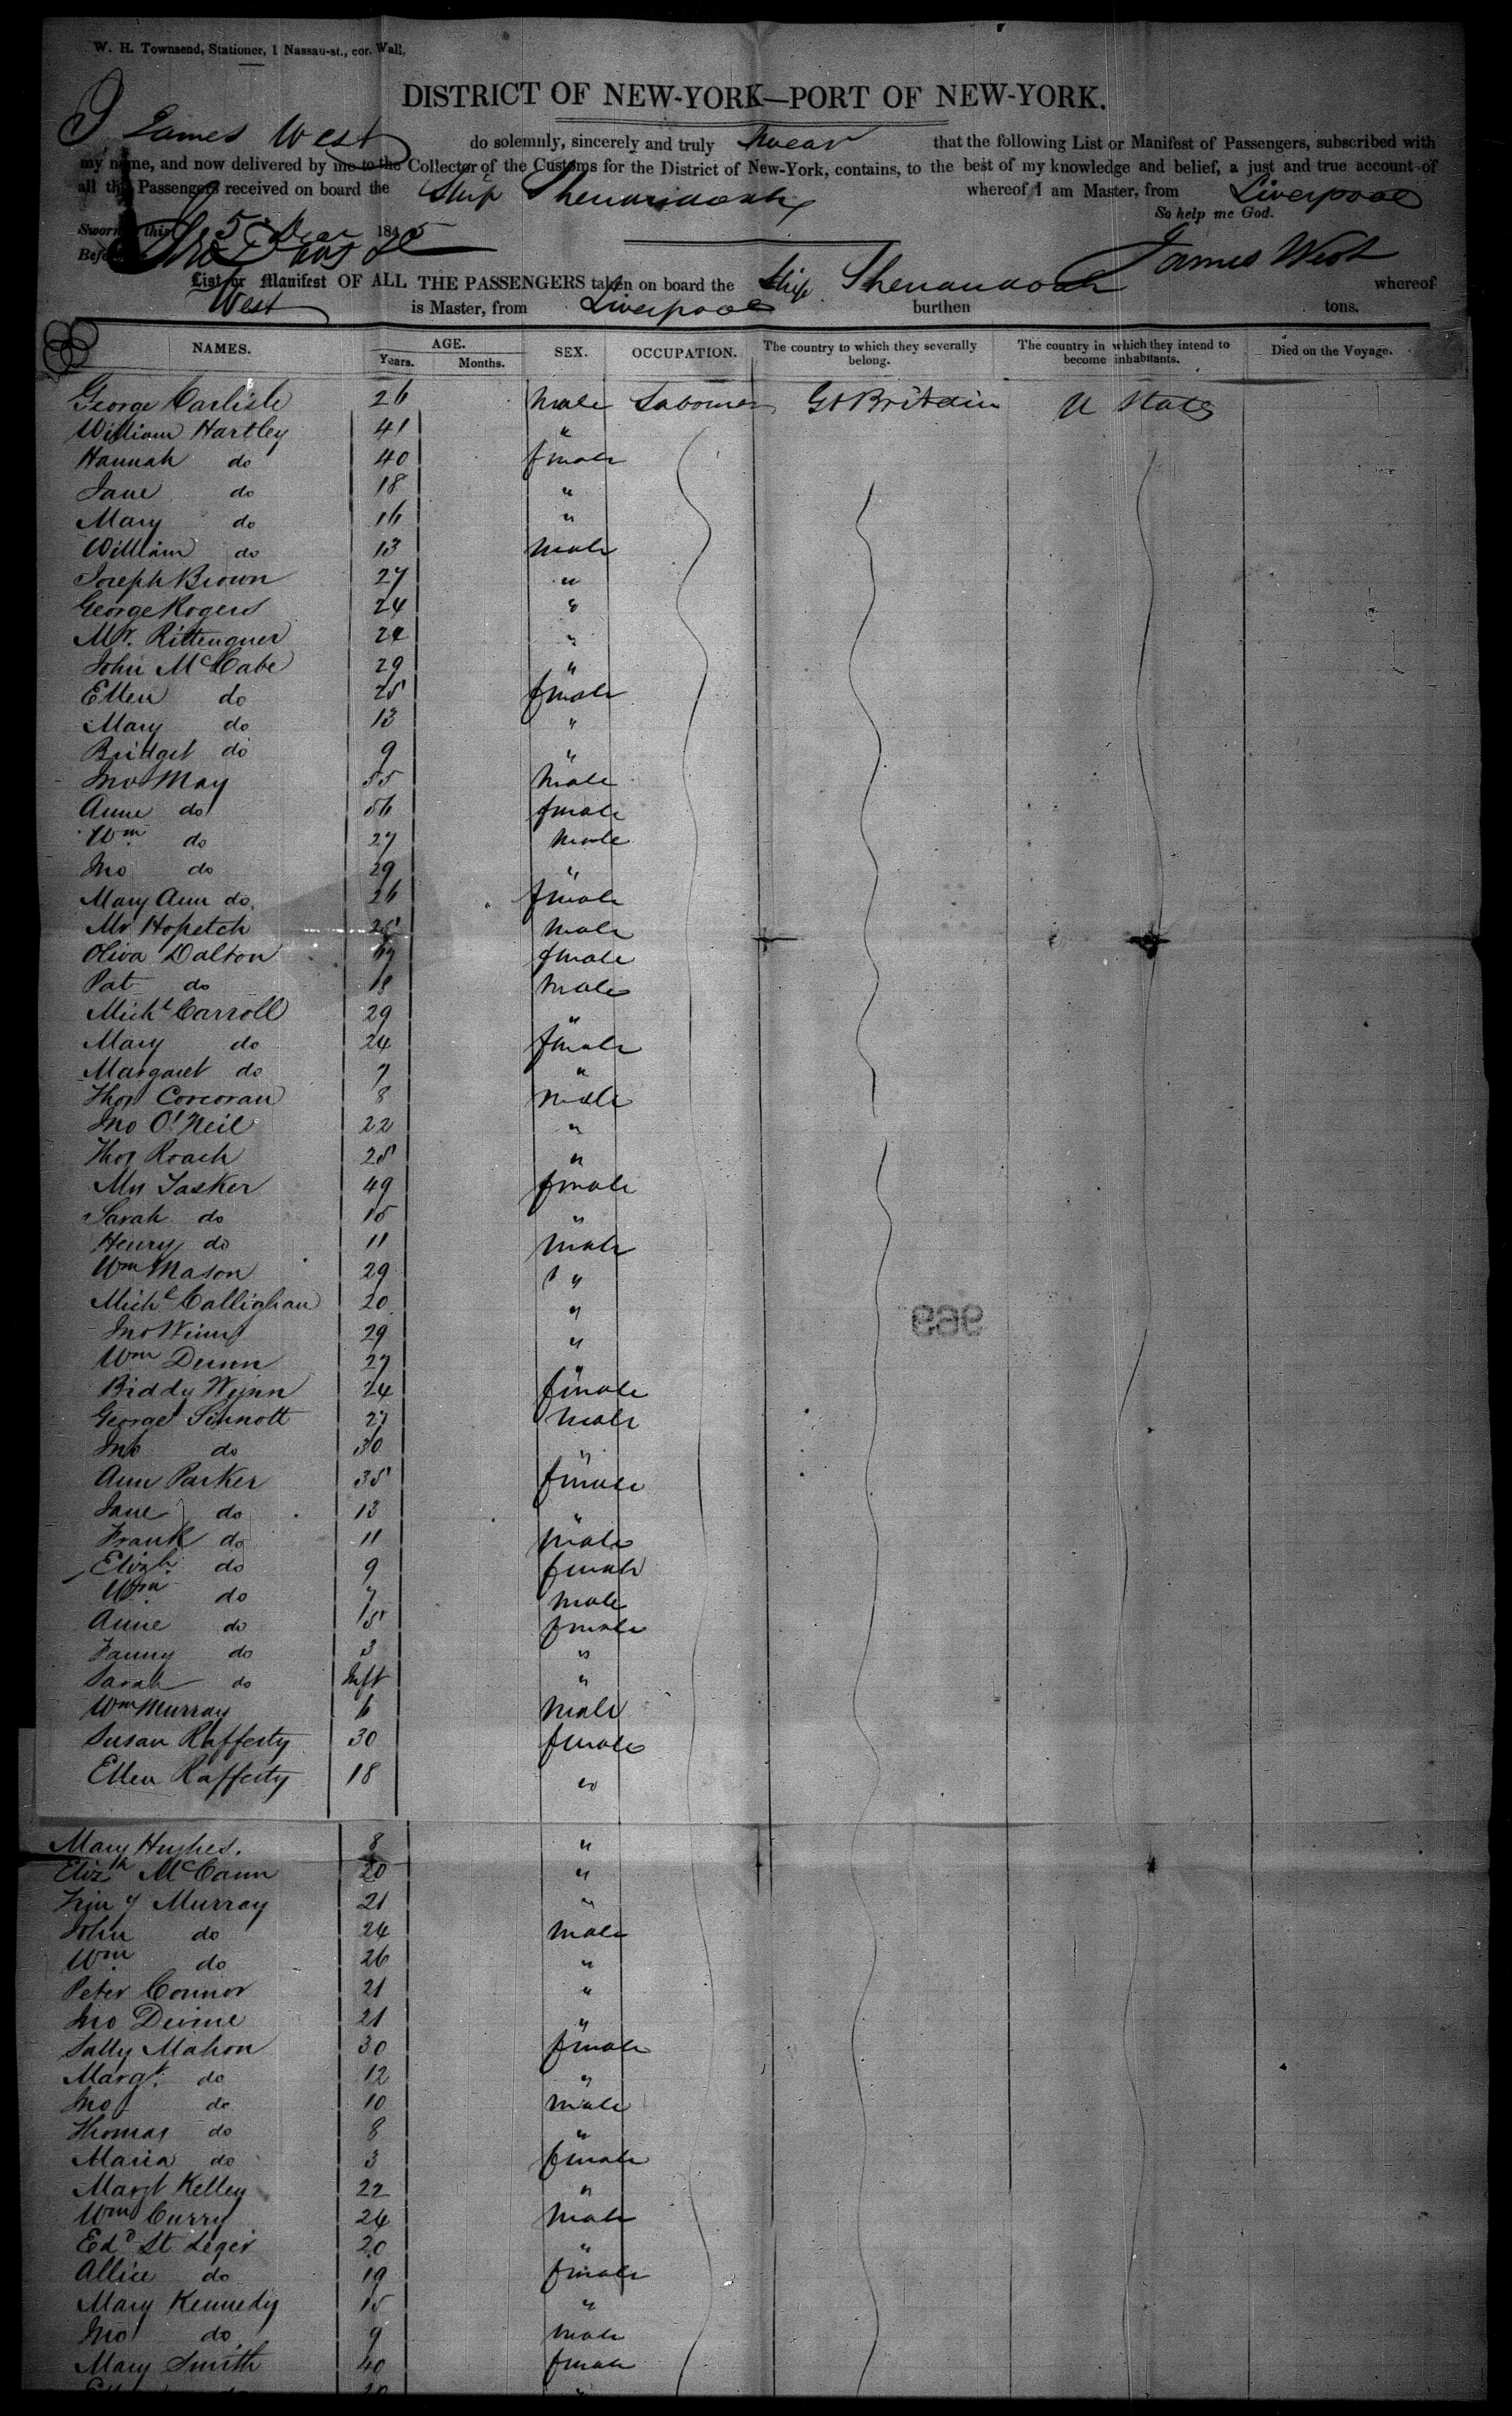 W. H. Townsend, Stationer, 1 Nassau-st., cor. Wall.
DISTRICT OF NEW-YORK—PORT OF NEW-YORK.
I James West do solemnly, sincerely and truly swear that the following List or Manifest of Passengers, subscribed with
my name, and now delivered by me to the Collector of the Customs for the District of New-York, contains, to the best of my knowledge and belief, a just and true account of
all the Passengers received on board the Ship Shenandoah whereof I am Master, from Liverpool
So help me God.
Sworn this 5 Dec 1845
Before
James West
List or Manifest OF ALL THE PASSENGERS taken on board the Ship Shenandoah whereof
West is Master, from Liverpool burthen tons.
NAMES. AGE. SEX. OCCUPATION. The country to which they severally belong. The country in which they intend to become inhabitants. Died on the Voyage.
Years. Months.
George Carlisle 26 male Labourer Gt Britain U States
William Hartley 41 "
Hannah do 40 female
Jane do 18 "
Mary do 16 "
William do 13 male
Joseph Brown 27 "
George Rogers 24 "
Mr. 24 "
John McCabe 29 "
Ellen do 25 female
Mary do 13 "
Bridget do 9 "
Jno May 55 male
Anne do 56 female
Wm do 27 male
Jno do 29 "
Mary Ann do 26 female
Mr Hopetch 25 male
Oliva Dalton female
Pat do 18 male
Michl Carroll 29 "
Mary do 24 female
Margaret do 7 "
Thos Corcoran 8 male
Jno O'Neil 22 "
Thos Roach 25 "
Mrs Tasker 49 female
Sarah do 15 "
Henry do 11 male
Wm Mason 29 "
Michl Callighan 20 "
Jno Winn 29 "
Wm Dunn 27 "
Biddy Wynn 24 female
George Sinnott 27 male
Jno do 30 "
Ann Parker 35 female
Jane do 13 "
Frank do 11 male
Elizh do 9 female
Wm do 7 male
Anne do 5 female
Fanny do 3 "
Sarah do Inft "
Wm Murray 6 male
Susan Rafferty 30 female
Ellen Rafferty 18 "
Mary Hughes. 8 "
Elizh McCann 20 "
Murray 21 "
John do 24 male
Wm do 26 "
Peter Connor 21 "
Jno Devine 21 "
Sally Mahon 30 female
Margt. do 12 "
Jno do 10 male
Thomas do 8 "
Maria do 3 female
Margt Kelley 22 "
Wm Curry 24 male
Edd St Leger 20 "
Allice do 19 female
Mary Kennedy 15 "
Jno do 9 male
Mary Smith 40 female
20 "